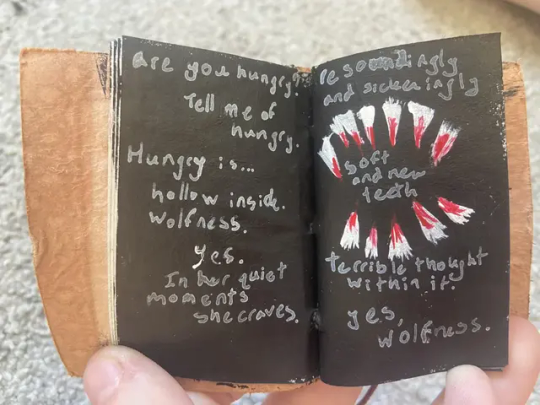 are you hungry?
Tell me of
hungry.
Hungry is...
hollow inside.
wolfness.
yes.
In her quiet
moments
she craves.
resoundingly
and sickeningly
soft
and new
teeth
terrible thought
within it.
yes,
wolfness.